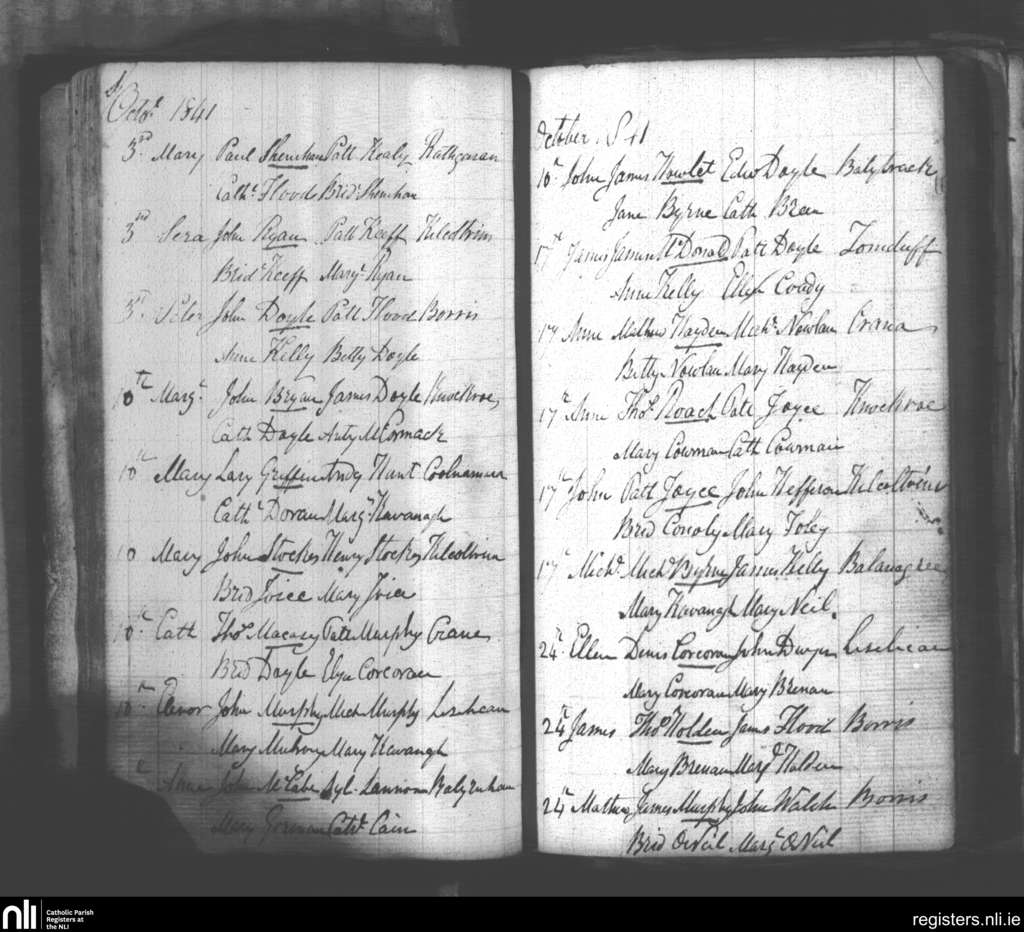 Octr. 1841
3rd Mary Paul Shenehan Patt Healy Rathgaran
Cathr. Flood Brid. Shenehan
3rd Sera John Ryan Patt Keeff Kilcoltrim
Brid. Keeff Mary Ryan
3rd Peter John Doyle Patt Flood Borris
Anne Kelly Betty Doyle
10th Margt. John Bryan James Doyle Knockroe
Cath Doyle Anty McCormack
10th Mary Lary Griffin Andy Hunt Coolnamara
Cathr. Doran Margt. Kavanagh
10 Mary John Stockes Henry Stockes Kilcoltrim
Brid Joice Mary Joice
10th Cath Thos. Macasy Patt Murphy Crane
Brid Doyle Elyn Corcoran
10th Elenor John Murphy Mich Murphy Liseheean
Mary Mulrony Mary Kavanagh
Anne John McCabe Syl. Lannon
Mary Gorman Cathr. Cain
October 1841
10th John James Howlet Edwd Doyle Balybrack
Jane Byrne Cath Breen
17th James James McDonad Patt Doyle Tomduff
Anne Kelly Ellen Coady
17 Anne Mathew Hayden Michl. Nowlan Crana
Betty Nowlan Mary Hayden
17th Anne Thos. Roach Patt Joyce Knockroe
Mary Cowman Cath Cowman
17th John Patt Joyce John Hefferon Kilcoltrim
Brid Conoly Mary Foley
17th Michl. Michl. Byrne James Kelly Balanagree
Mary Kavanagh Mary Neil.
24th Ellen Denis Corcoran John Dwyer
Mary Corcoran Mary Brenan
24th James Thos. Holden James Flood Borris
Mary Brenan Margt. Holden
24th Mathew James Murphy John Walsh Borris
Brid ONeil Margt. ONeil
nli
Catholic Parish
Registers at
the NLI
registers.nli.ie